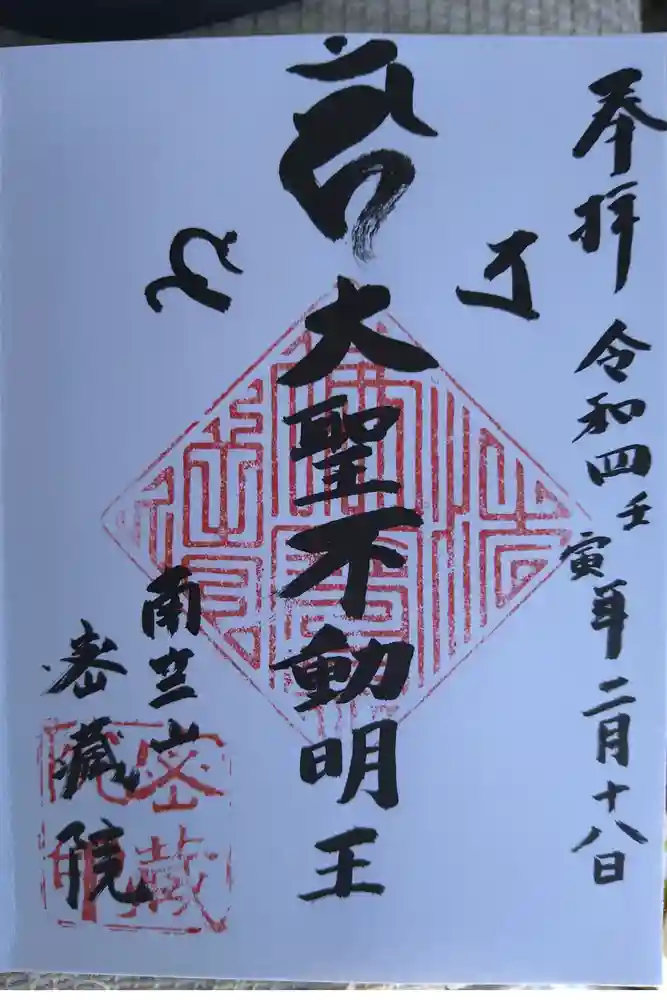 奉拝
令和四壬寅年二月十八日
大聖不動明王
南竺山
密蔵院
密蔵院印